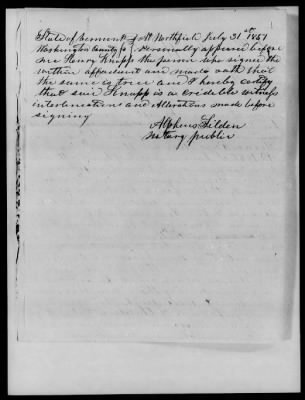 State of Vermont } At Northfield July 31st 1851
Washington County } Personally appeared before
me Henry Knapp the person who signed the
within appendant and made oath that
the same is true and I hereby certify
that said Knapp is a credible witness
interlineations and Alterations made before
signing
Alpheus Tilden
Notary public